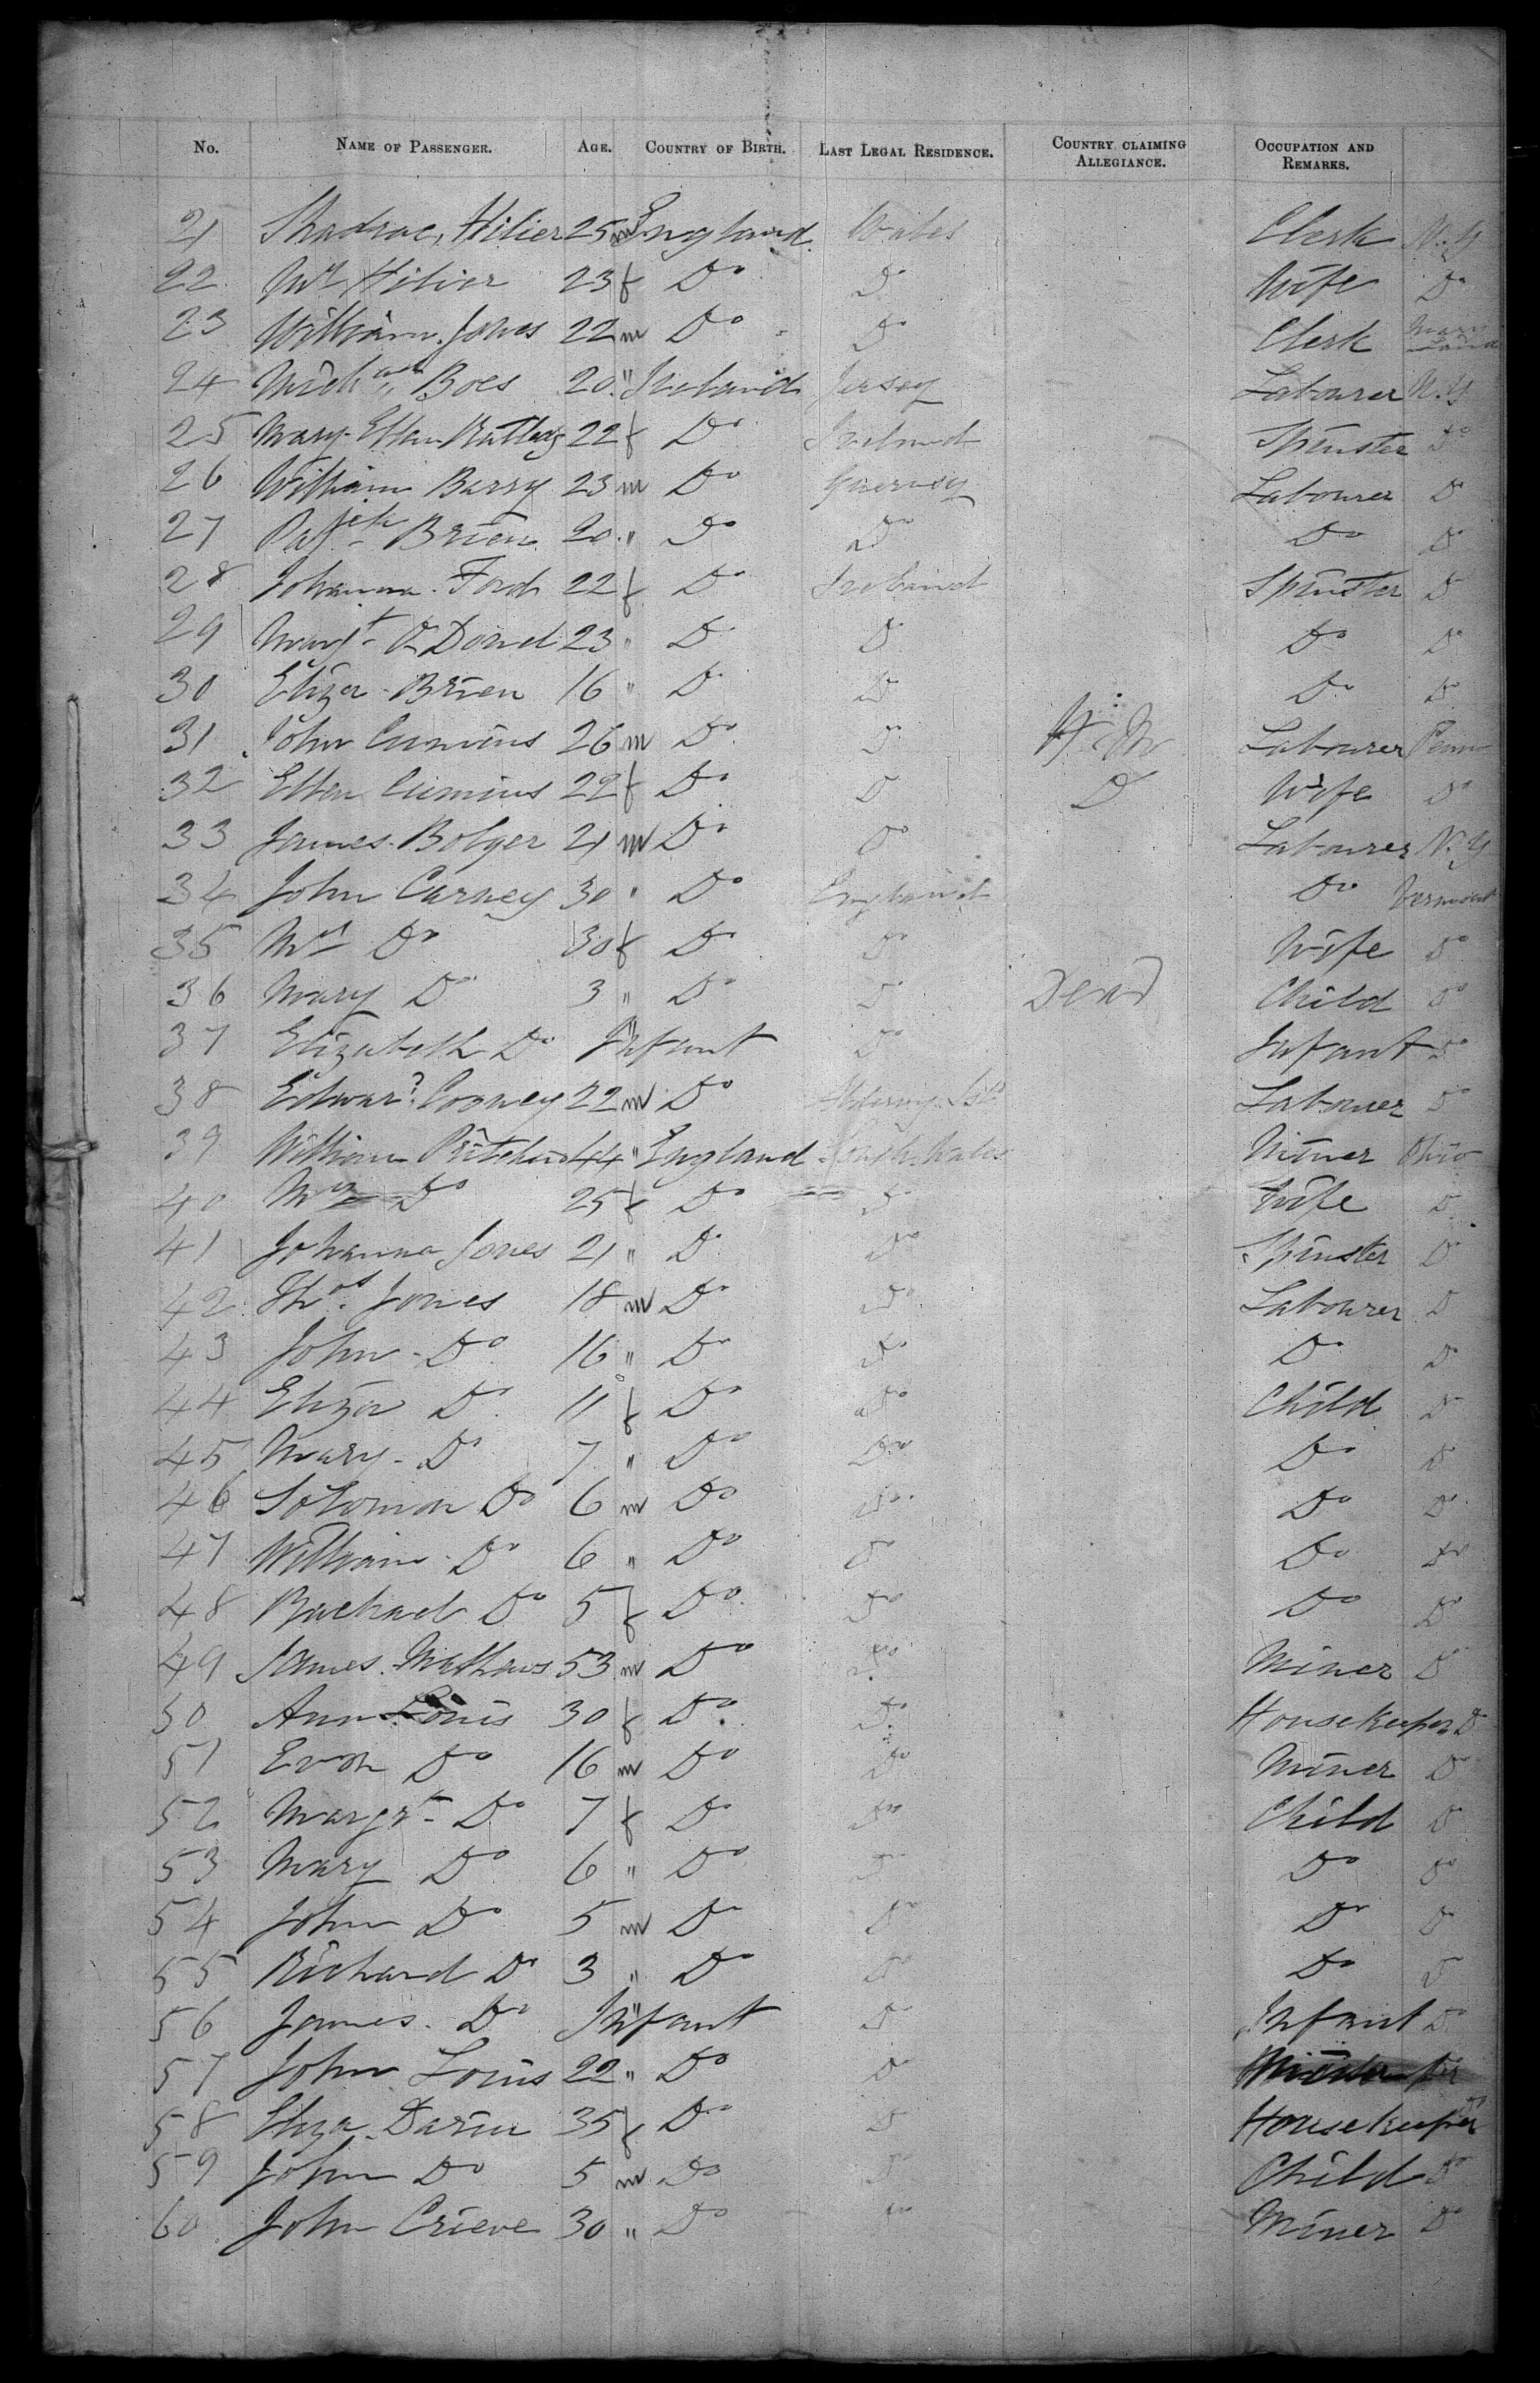 No. NAME OF PASSENGER. AGE. COUNTRY OF BIRTH. LAST LEGAL RESIDENCE. COUNTRY CLAIMING ALLEGIANCE. OCCUPATION AND REMARKS.
21 Shadrac, Hilier 25 m England Wales Clerk N.Y
22 Mrs Hilier 23 f Do Do Wife Do
23 William Jones 22 m Do Do Clerk Mary Land
24 Mich Boes 20 " Ireland Jersey Labourer N.Y
25 Mary Ellen 22 f Do Ireland Spinster Do
26 William Barry 23 m Do Guernsey Labourer Do
27 Brien 20 " Do Do Do Do
28 Johanna Ford 22 f Do Ireland Spinster Do
29 Margt O Dowd 23 " Do Do Do Do
30 Eliza Brien 16 " Do Do Do Do
31 John Cumins 26 m Do Do Labourer Penn
32 Ellen Cumins 22 f Do Do Do Wife Do
33 James Bolger 21 m Do Do Labourer N.Y
34 John Carney 30 " Do England Do Vermont
35 Mrs Do 30 f Do Do Wife Do
36 Mary Do 3 " Do Do Dead Child Do
37 Elizabeth Do Infant Do Infant Do
38 Edward Cooney 22 m Do Labourer Do
39 William Pritchard 44 " England South Wales Miner Ohio
40 Mrs Do 25 f Do Do Wife Do
41 Johanna Jones 21 " Do Do Spinster Do
42 Thos. Jones 18 m Do Do Labourer Do
43 John Do 16 " Do Do Do Do
44 Eliza Do 11 f Do Do Child Do
45 Mary Do 7 " Do Do Do Do
46 Soloman Do 6 m Do Do Do Do
47 William Do 6 " Do Do Do Do
48 Racheal Do 5 f Do Do Do Do
49 James Mathews 53 m Do Do Miner Do
50 Ann Louis 30 f Do Do Housekeeper Do
51 Evan Do 16 m Do Do Miner Do
52 Margrt Do 7 f Do Do Child Do
53 Mary Do 6 " Do Do Do Do
54 John Do 5 m Do Do Do Do
55 Richard Do 3 " Do Do Do Do
56 James Do Infant Do Infant Do
57 John Louis 22 " Do Do
58 Eliza 35 f Do Do Housekeeper Do
59 John Do 5 m Do Do Child Do
60 John Crieve 30 " Do Do Miner Do